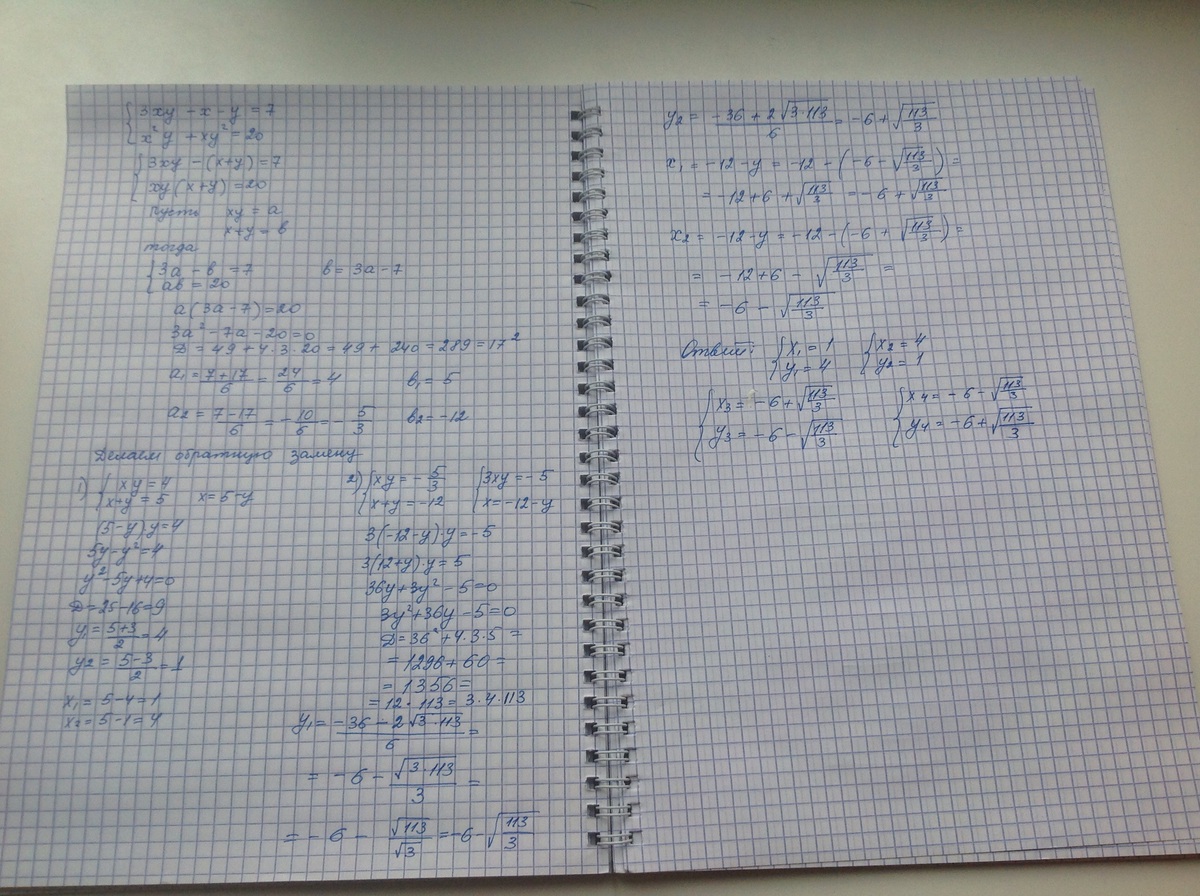 { 3xy - x - y = 7
{ x²y + xy² = 20
{ 3xy - (x+y) = 7
{ xy(x+y) = 20
пусть xy = a
x+y = b
тогда
{ 3a - b = 7    b = 3a - 7
{ ab = 20
a(3a-7) = 20
3a² - 7a - 20 = 0
D = 49 + 4·3·20 = 49 + 240 = 289 = 17²
a₁ = (7+17)/6 = 24/6 = 4    b₁ = 5
a₂ = (7-17)/6 = -10/6 = -5/3    b₂ = -12
Делаем обратную замену
1) { xy = 4
{ x+y = 5    x = 5-y
(5-y)·y = 4
5y - y² = 4
y² - 5y + 4 = 0
D = 25 - 16 = 9
y₁ = (5+3)/2 = 4
y₂ = (5-3)/2 = 1
x₁ = 5-4 = 1
x₂ = 5-1 = 4
2) { xy = -5/3    { 3xy = -5
{ x+y = -12    { x = -12-y
3(-12-y)·y = -5
3(12+y)·y = 5
36y + 3y² - 5 = 0
3y² + 36y - 5 = 0
D = 36² + 4·3·5 =
= 1296 + 60 =
= 1356 =
= 12·113 = 3·4·113
y₁ = (-36 - 2√(3·113))/6 =
= -6 - √(3·113)/3 =
= -6 - √113/√3 = -6 - √(113/3)
y₂ = (-36 + 2√(3·113))/6 = -6 + √(113/3)
x₁ = -12 - y = -12 - (-6 - √(113/3)) =
= -12 + 6 + √(113/3) = -6 + √(113/3)
x₂ = -12 - y = -12 - (-6 + √(113/3)) =
= -12 + 6 - √(113/3) =
= -6 - √(113/3)
Ответ: { x₁ = 1    { x₂ = 4
{ y₁ = 4    { y₂ = 1
{ x₃ = -6 + √(113/3)    { x₄ = -6 - √(113/3)
{ y₃ = -6 - √(113/3)    { y₄ = -6 + √(113/3)